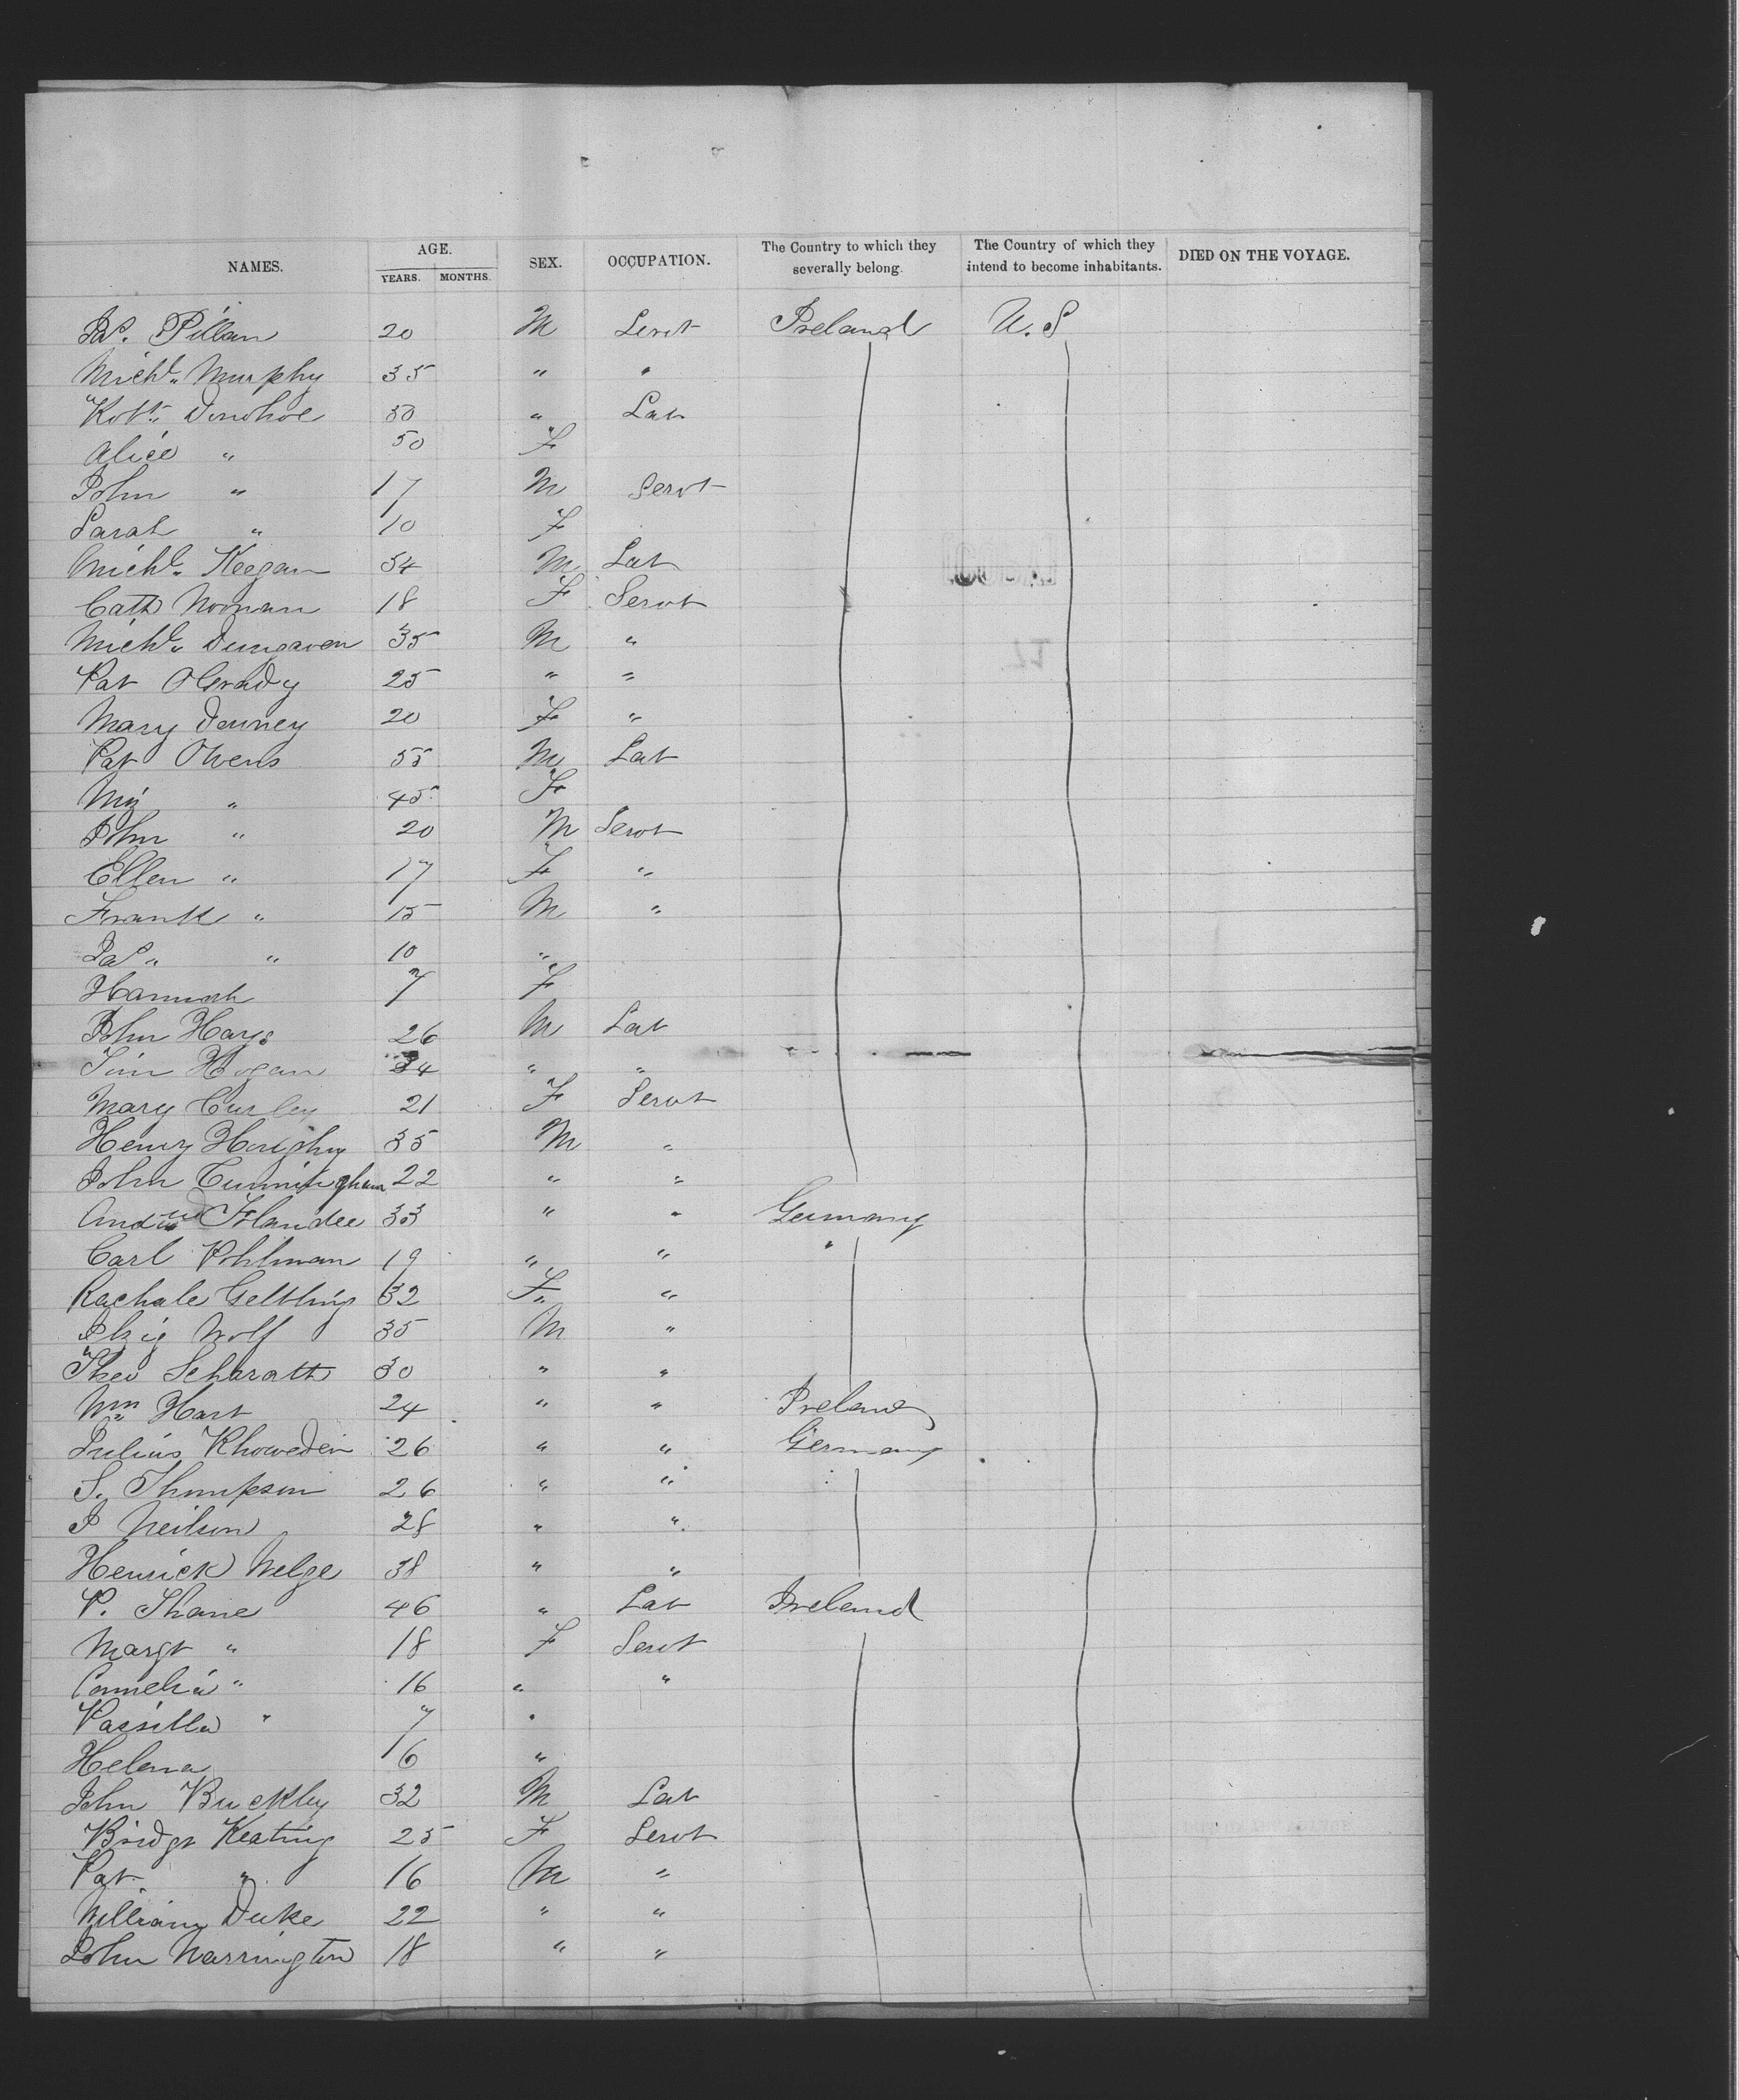 NAMES. AGE. SEX. OCCUPATION. The Country to which they severally belong. The Country of which they intend to become inhabitants. DIED ON THE VOYAGE.
YEARS. MONTHS.
Jas. Pillan 20 M Servt Ireland U.S
Michl. Murphy 35 " "
Robt. Donohoe 50 " Lab
Alice " 50 F
John " 17 M Servt
Sarah " 10 F
Michl. Keegan 34 M Lab
Cath Noonan 18 F Servt
Michl. Dungaven 35 M "
Pat O Grady 25 " "
Mary Downey 20 F "
Pat Owens 55 M Lab
" 45 F
John " 20 M Servt
Ellen " 17 F "
Frank " 15 M "
Jas. " 10 "
Hannah 7 F
John Hays 26 M Lab
Tim Hogan 34 " "
Mary Curley 21 F Servt
Henry 35 M "
John Cunningham 22 " "
Andw 33 " " Germany
Carl Pohlman 19 " "
Rachale Geltling 32 F "
Wolf 35 M "
Theo Scharath 30 " "
Wm Hart 24 " " Ireland
Julius Khowedin 26 " " Germany
S. Thompson 26 " "
J Neilson 28 " "
Henrick Welge 38 " "
P. Shane 46 " Lab Ireland
Margt " 18 F Servt
Cornelia " 16 " "
" 7 "
Helena 6 "
John Buckley 32 M Lab
Bridgt Keating 25 F Servt
Pat " 16 M "
William Duke 22 " "
John Warrington 18 " "